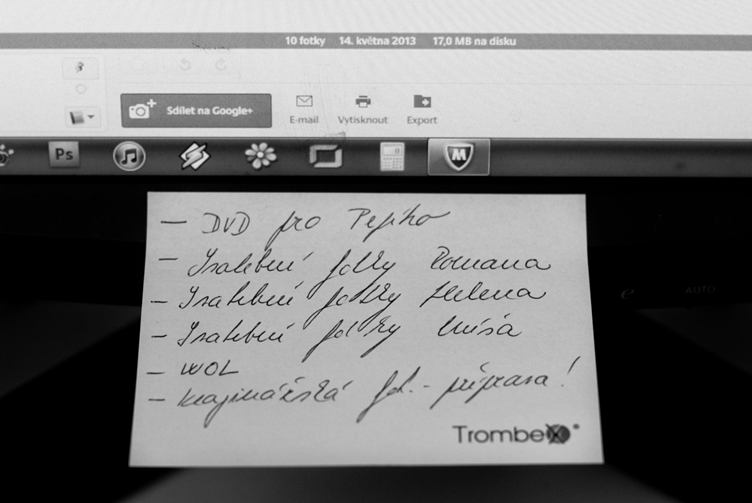 10 fotky 14. května 2013 17,0 MB na disku
Sdílet na Google+
E-mail Vytisknout Export
Ps M
— DVD pro Pepího
— Svatební fotky Romana
— Svatební fotky Helena
— Svatební fotky Míša
— WOL
— krajinářská fot. - příprava!
e AUTO
Trombex®